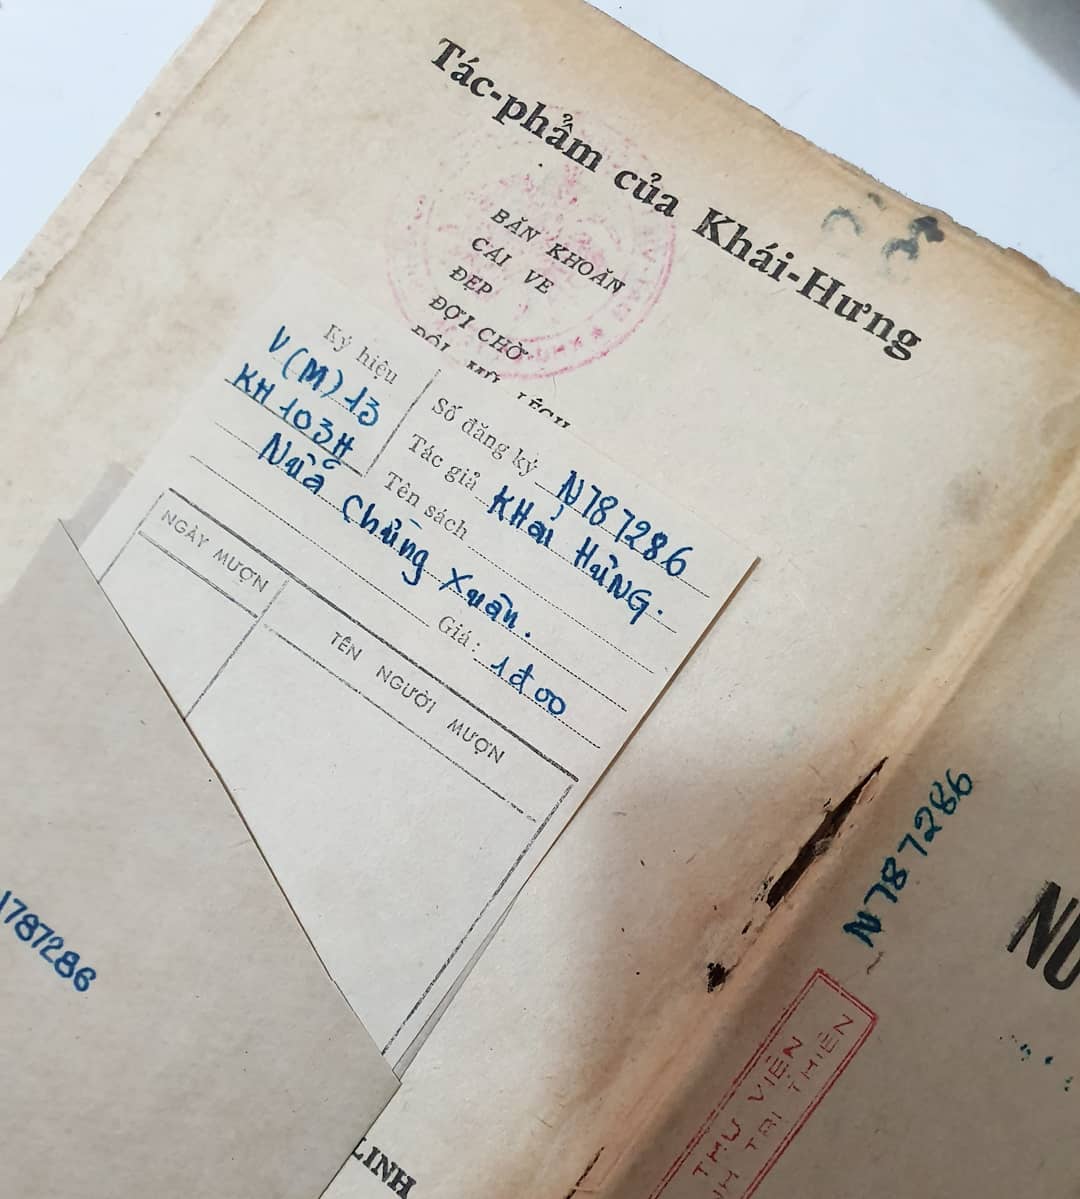 Tác-phẩm của Khái-Hưng
BĂN KHOĂN
CÁI VE
ĐẸP
ĐỢI CHỜ
Ký hiệu
V (M) 13
KH 103H
Số đăng ký N787286
Tác giả KHái HưNG.
Tên sách
Nửa Chừng Xuân.
Giá: 1đ00
NGÀY MƯỢN
TÊN NGƯỜI MƯỢN
1787286
N787286
THƯ VIỆN
TRỊ THIÊN
LINH